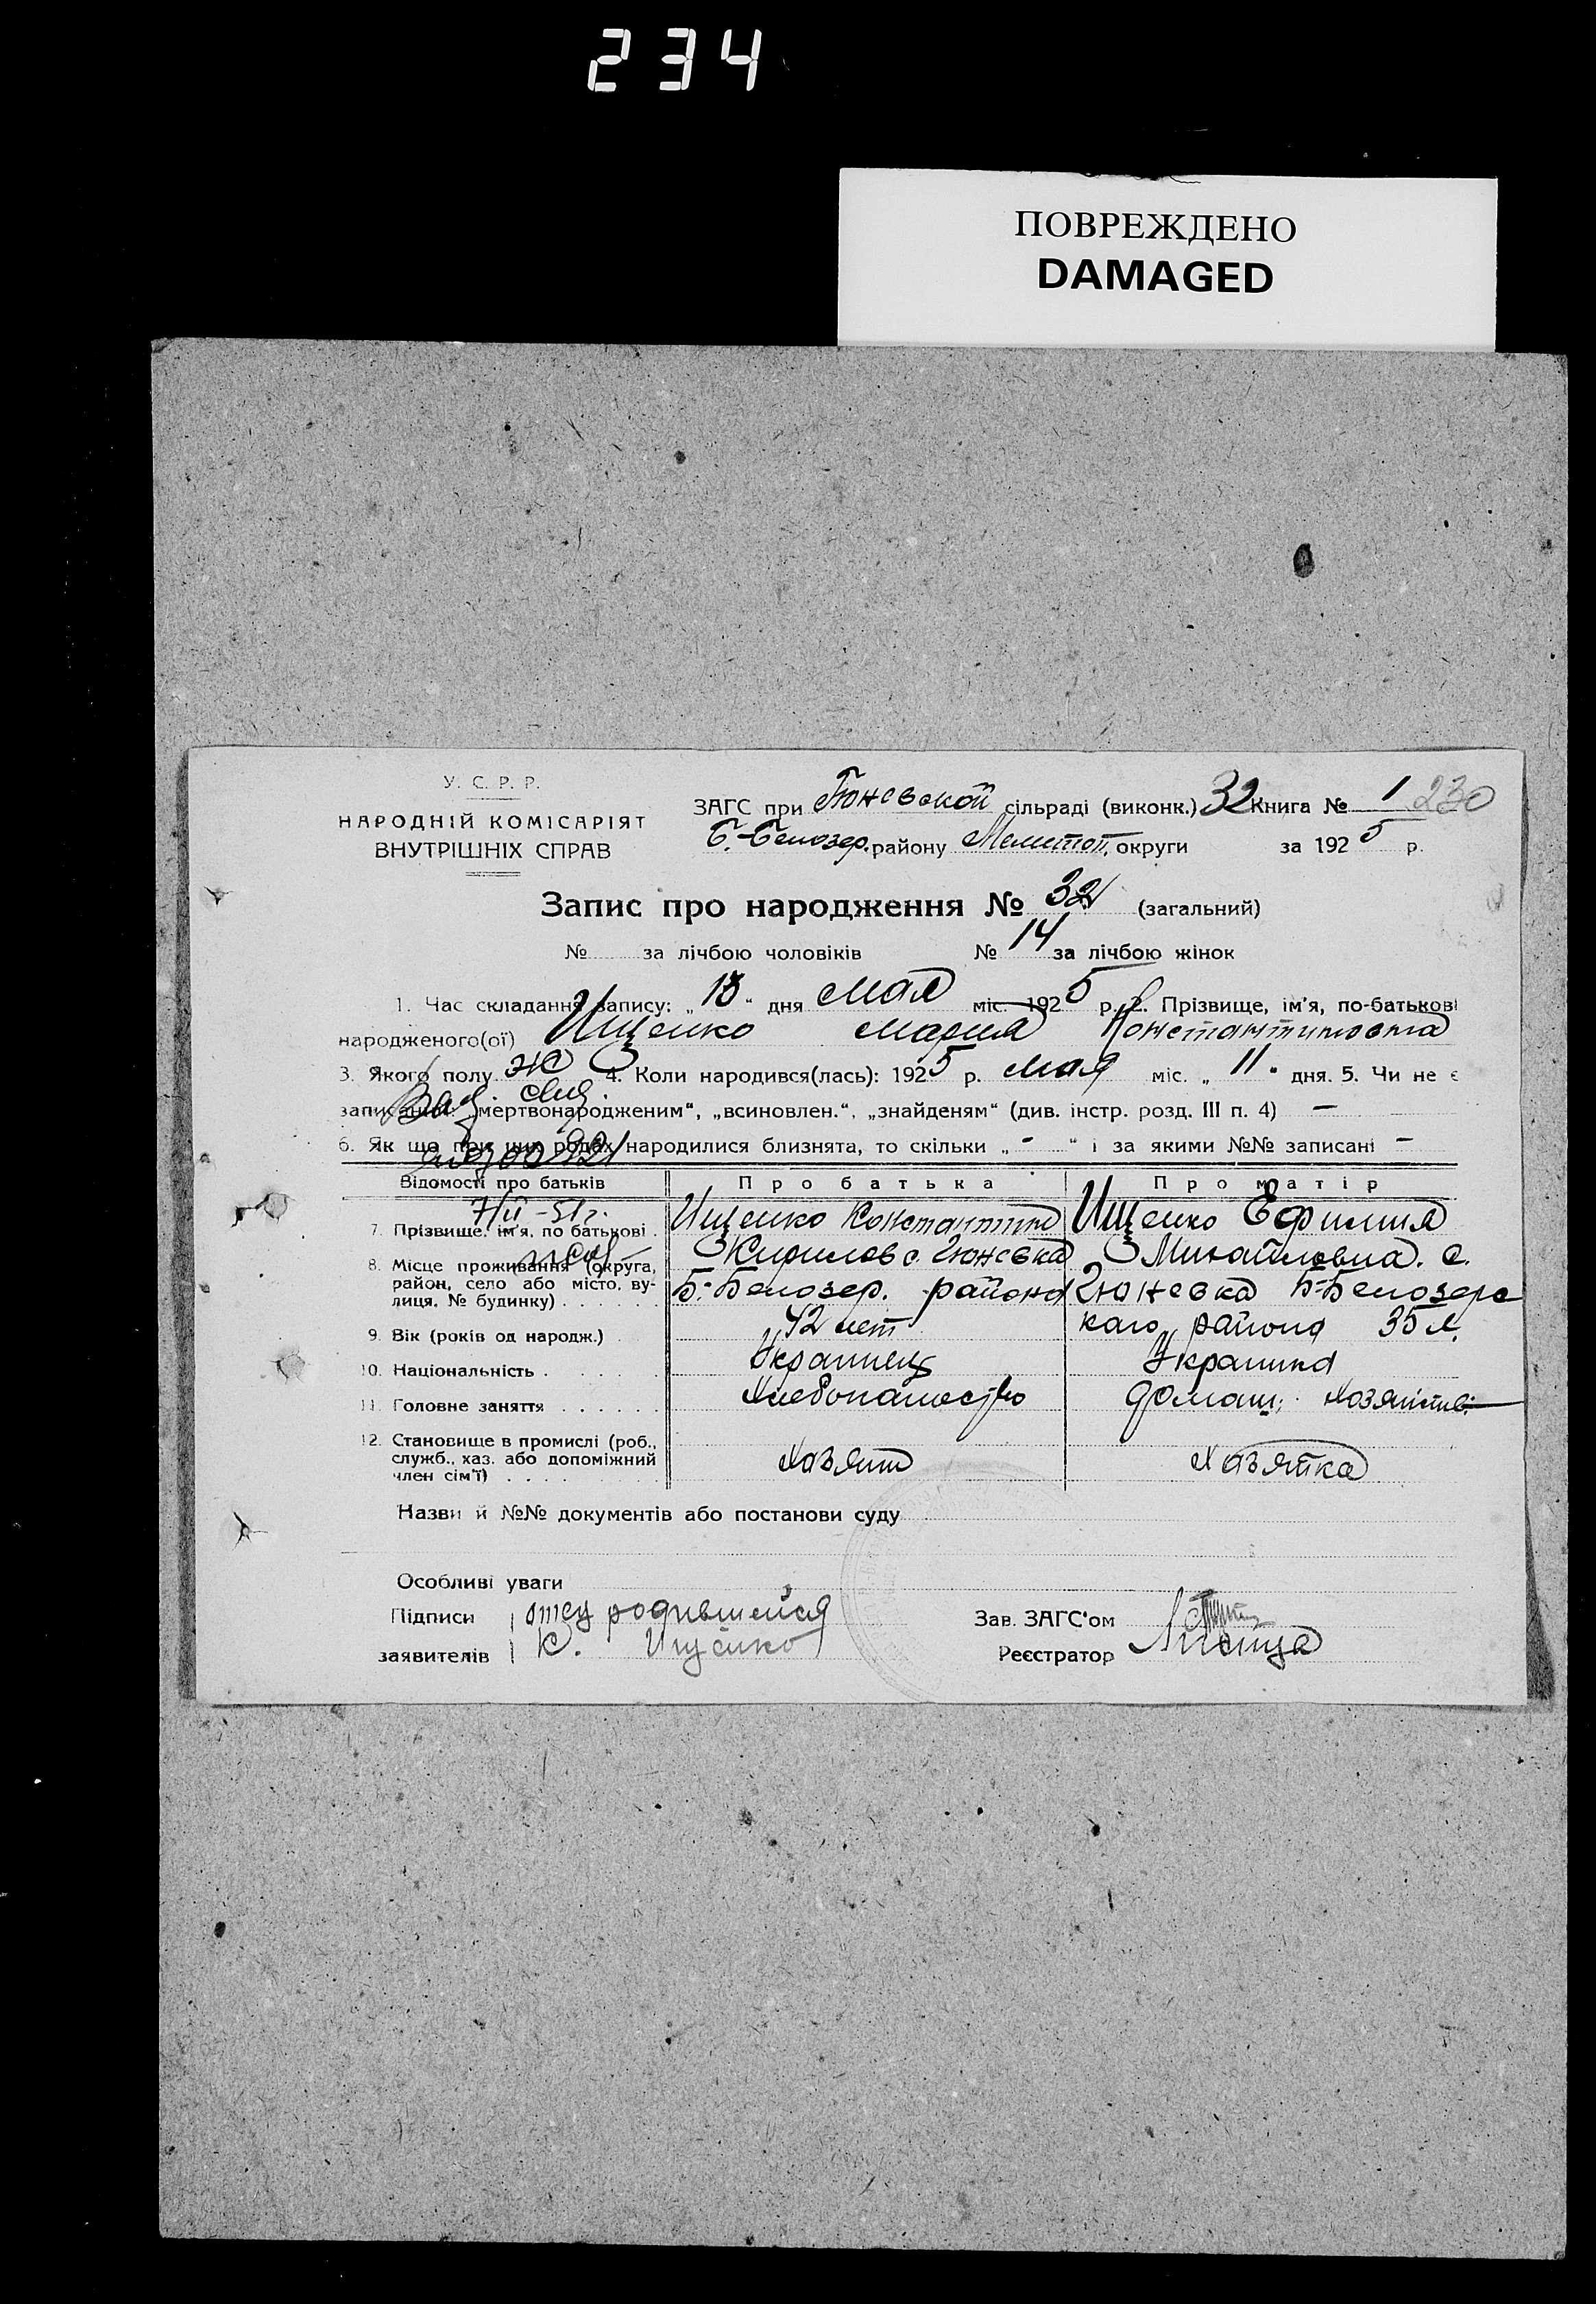 234
ПОВРЕЖДЕНО
DAMAGED
У. С. Р. Р.
НАРОДНІЙ КОМІСАРІЯТ
ВНУТРІШНІХ СПРАВ
ЗАГС при Гюневской сільраді (виконк.) 32 Книга № 1 230
Б.-Белозер. району Мелитоп. округи за 1925 р.
Запис про народження № 32 (загальний)
№ за лічбою чоловіків № 14 за лічбою жінок
1. Час складання запису: „ 13 “ дня мая міс. 1925 р. 2. Прізвище, ім’я, по-батькові
народженого(ої) Ищенко Мария Константиновна
3. Якого полу ж 4. Коли народився(лась): 1925 р. мая міс. „ 11 “ дня. 5. Чи не є
записаний: „мертвонародженим“, „всиновлен.“, „знайденям“ (див. інстр. розд. III п. 4) —
6. Як що при цих родах народилися близнята, то скільки „ - “ і за якими №№ записані -
Відомості про батьків Про батька Про матір
7/II-51г.
7. Прізвище, ім’я, по батькові . Ищенко Константин Ищенко Ефимия
Кирилов с. Гюневка Михайловна. с.
8. Місце проживання (округа,
район, село або місто, ву-
лиця, № будинку) . . . . . . Б.-Белозер. района Гюневка Б-Белозерс
9. Вік (років од народж.) . 42 лет каго района 35 л.
10. Національність . . . . . Украинец Украинка
11. Головне заняття . . . . . . Хлебопашество домаш. хозяйств.
12. Становище в промислі (роб.,
служб., хаз. або допоміжний
член сім’ї) . . . . Хазяин Хазяйка
Назви й №№ документів або постанови суду
Особливі уваги
Підписи отец родившейся Зав. ЗАГС‘ом
заявителів К. Ищенко Реєстратор